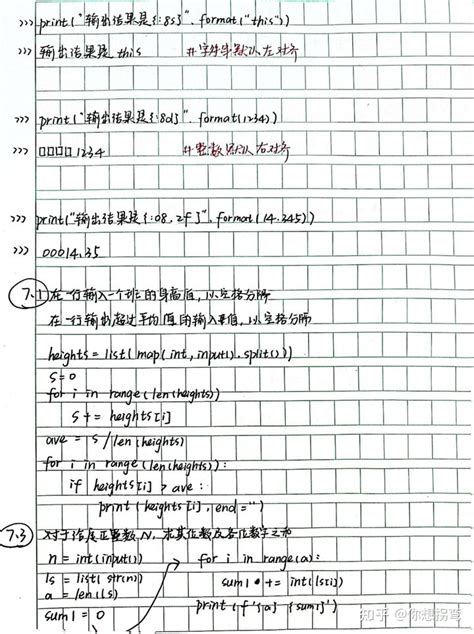 >>> print("输出结果是{:8s}".format("this"))
>>> 输出结果是this #字符串默认左对齐
>>> print("输出结果是{:8d}".format(1234))
>>> □□□□1234 #整数默认右对齐
>>> print("输出结果是{:08.2f}".format(14.345))
>>> 00014.35
7.1 在一行输入一个列的身高值,以空格分隔
在一行输出超过平均值的输入值,以空格分隔
heights = list(map(int,input().split())
s=0
for i in range(len(heights))
s += heights[i]
ave = s/len(heights)
for i in range(len(heights)):
if heights[i] > ave:
print(heights[i],end='')
7.3 对于给定正整数N,求其位数及各位数字之和
n = int(input())
ls = list(str(n))
a = len(ls)
sum1 = 0
for i in range(a):
sum1 += int(ls[i])
print(f'{a} {sum1}')
知乎 @你想拐弯